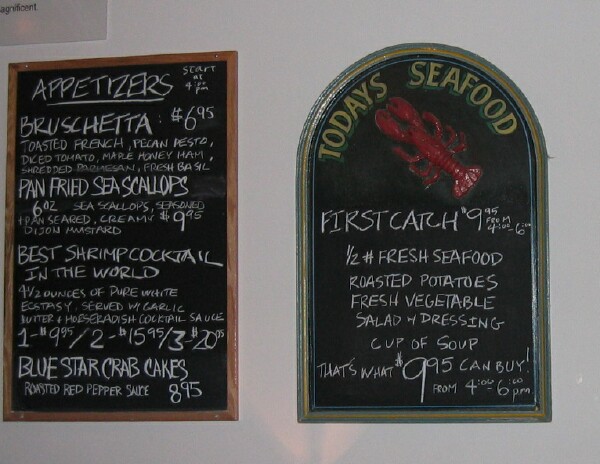 agnificent.
APPETIZERS
START
at
4:00
pm
BRUSCHETTA: $6.95
TOASTED FRENCH, PECAN PESTO,
DICED TOMATO, MAPLE HONEY HAM,
SHREDDED PARMESAN, FRESH BASIL
PAN FRIED SEA SCALLOPS
6 OZ SEA SCALLOPS, SEASONED
+ PAN SEARED, CREAMY $9.95
DIJON MUSTARD
BEST SHRIMP COCKTAIL
IN THE WORLD
4 1/2 OUNCES OF PURE WHITE
ECSTASY, SERVED W/ GARLIC
BUTTER + HORSERADISH COCKTAIL SAUCE
1-$9.95/2-$15.95/3-$20.95
BLUE STAR CRAB CAKES
ROASTED RED PEPPER SAUCE 8.95
TODAYS SEAFOOD
FIRST CATCH $9.95
FROM
4:00-6:00
1/2 # FRESH SEAFOOD
ROASTED POTATOES
FRESH VEGETABLE
SALAD w DRESSING
CUP OF SOUP
THAT'S WHAT $9.95 CAN BUY!
FROM 4:00-6:00 pm